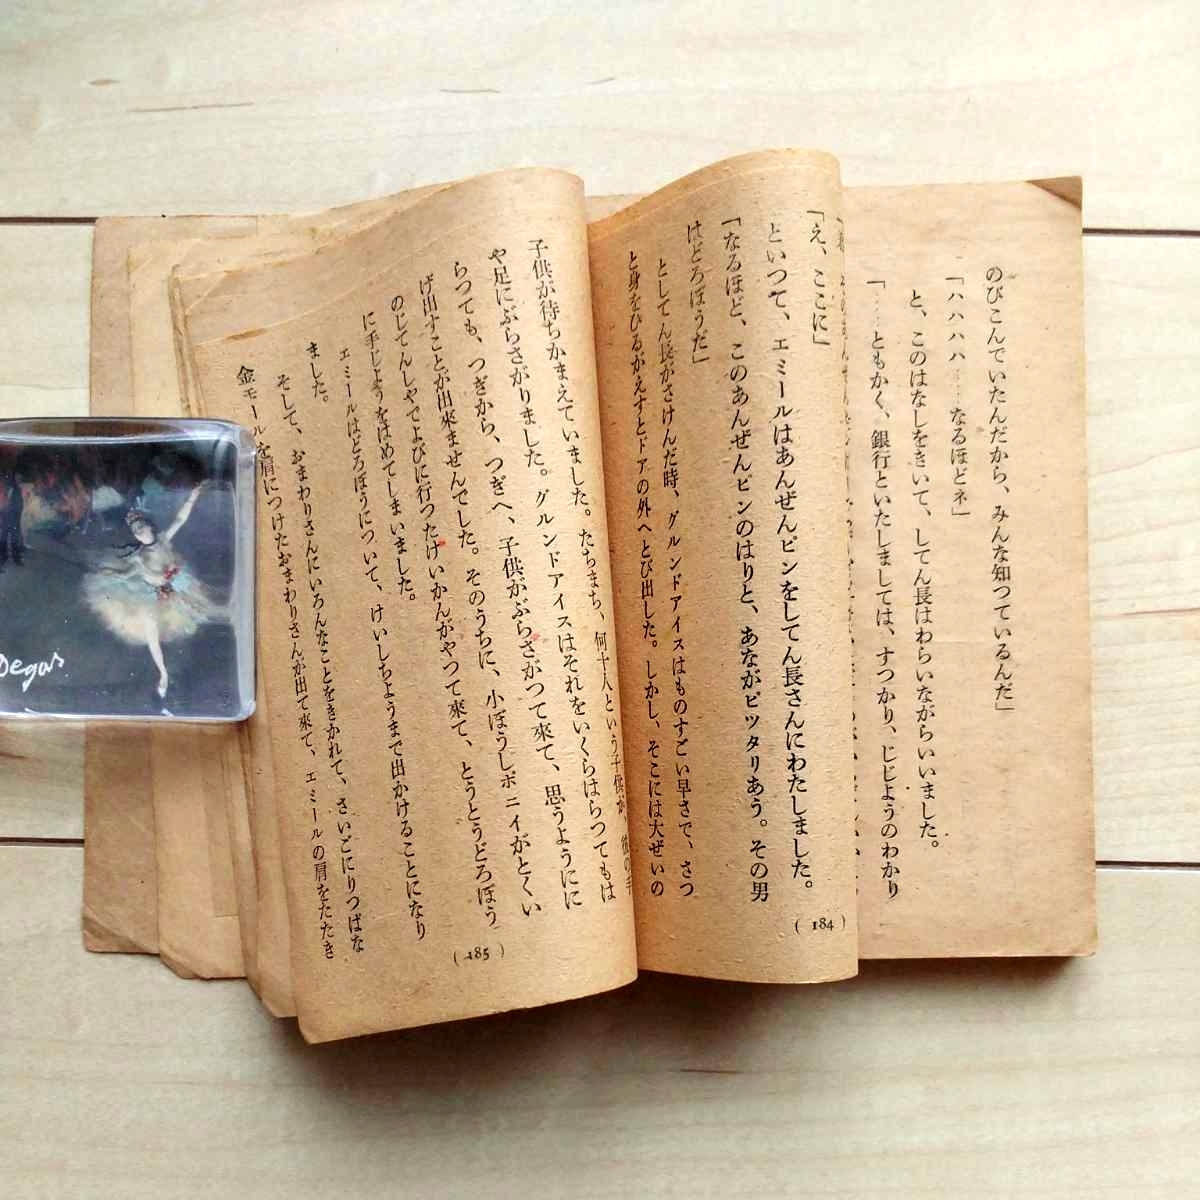 のびこんでいたんだから、みんな知つているんだ」
「ハハハハ……なるほどネ」
と、このはなしをきいて、してん長はわらいながらいいました。
「……ともかく、銀行といたしましては、すつかり、じじようのわかり
「え、ここに」
といつて、エミールはあんぜんピンをしてん長さんにわたしました。
「なるほど、このあんぜんピンのはりと、あながピツタリあう。その男
はどろぼうだ」
としてん長がさけんだ時、グルンドアイスはものすごい早さで、さつ
と身をひるがえすとドアの外へとび出した。しかし、そこには大ぜいの
(184)
子供が待ちかまえていました。たちまち、何十人という子供が、彼の手
や足にぶらさがりました。グルンドアイスはそれをいくらはらつてもは
らつても、つぎから、つぎへ、子供がぶらさがつて來て、思うようにに
げ出すことが出來ませんでした。そのうちに、小ぼうしポニイがとくい
のじてんしやでよびに行つたけいかんがやつて來て、とうとうどろぼう
に手じようをはめてしまいました。
エミールはどろぼうについて、けいしちようまで出かけることになり
ました。
そして、おまわりさんにいろんなことをきかれて、さいごにりつぱな
金モールを肩につけたおまわりさんが出て來て、エミールの肩をたたき
(185)
Degas